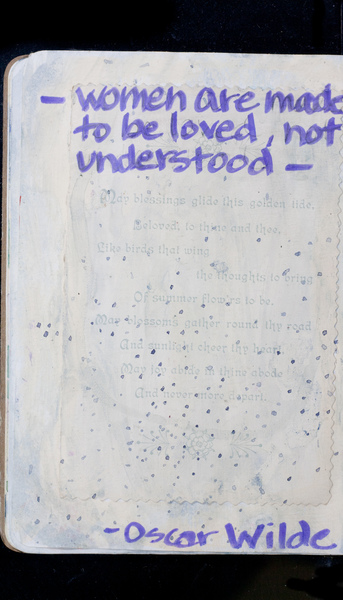 - women are made
to be loved, not
understood -
May blessings glide this golden tide,
Beloved, to thine and thee,
Like birds that wing
the thoughts to bring
Of summer flow'rs to be.
May blossoms gather round thy road
And sunlight cheer thy heart
May joy abide in thine abode
And never more depart.
- Oscar Wilde